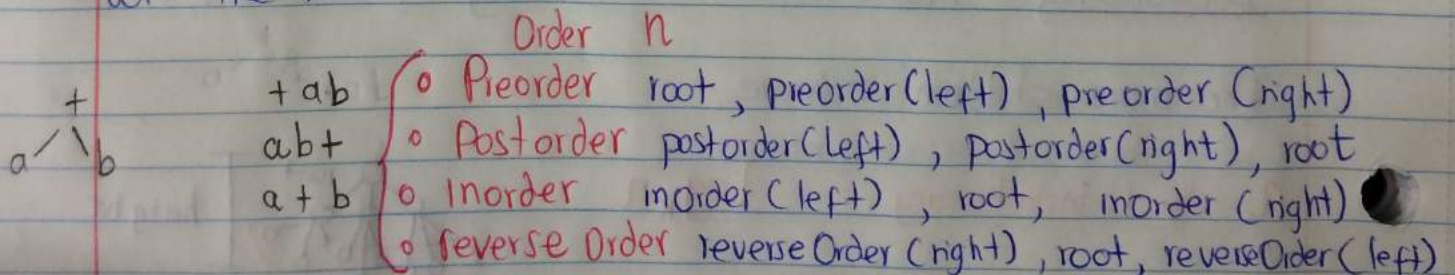 Order n
+ ab o Preorder root, preorder(left), preorder (right)
+
ab+ o Postorder postorder(left), postorder(right), root
a b
a + b o Inorder inorder (left), root, inorder (right)
o reverse Order reverse Order (right), root, reverseOrder (left)